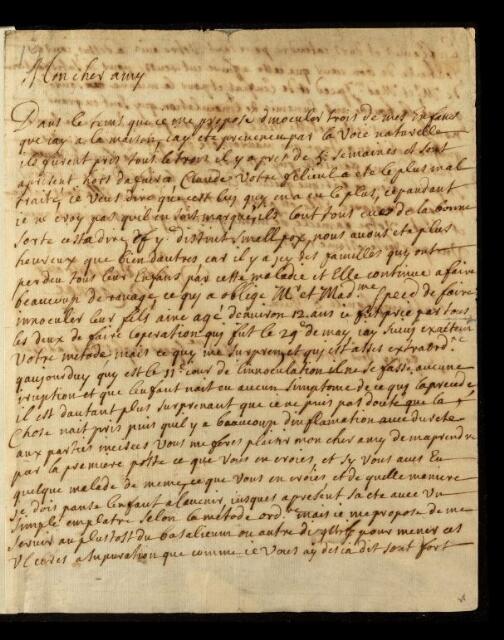 Mon cher amy
Dans le tems que ie me propose dinoculer trois de mes Enfens
que iay a la maison, iay ete prevenu par la Voie naturelle
ils furent pris tous le trois il y a pres de 5 semaines et sont
apresent hors dafaire Claude Votre filieul a ete le plus mal
traité, ie Veus dire que cest luy quy en a eu le plus, cependant
ie ne croy pas quil en soit marqué, ils lont tous eues de la bonne
sorte cestadire of ye distinct small pox, nous avons ete plus
heureux que bien dautres car il y a icy des familles quy ont
perdeu tous leur Enfans par cette maledie et Elle continue a faire
beaucoup de ravage ce quy a obligé Mr et Madme Speed de faire
innoculer leur fils ainé agé denviron 12 ans ie fus prié par tous
les deux de faire loperation quy fut le 29e de may iay suivi exactem
Votre metode mais ce quy me surprent et quy est asses extraordre
quaujourduy quy est le 11e iour de linnoculation il ne se fasse aucune
irruption et que lenfant nait eu aucun simptome de ce quy la precede
il est dautant plus surprenant que ie ne puis pas douter que la
Chose nait pris puis quil y a beaucoup dinflamation avec dureté
aux parties incisees Vous me feres plaisir mon cher amy de maprendre
par la premiere poste ce que Vous en croies, et sy Vous aves Eu
quelque malede de meme, ce que Vous en croies et de quelle maniere
ie dois panse lenfant alavenir, iusques apresent sa ete avec Un
simple emplatre selon la metode ordre mais ie me propose de me
servir au plustost du basalicum ou autre pour mener ces
Ulceres a supuration que comme ie Vous ay desia dit sont fort